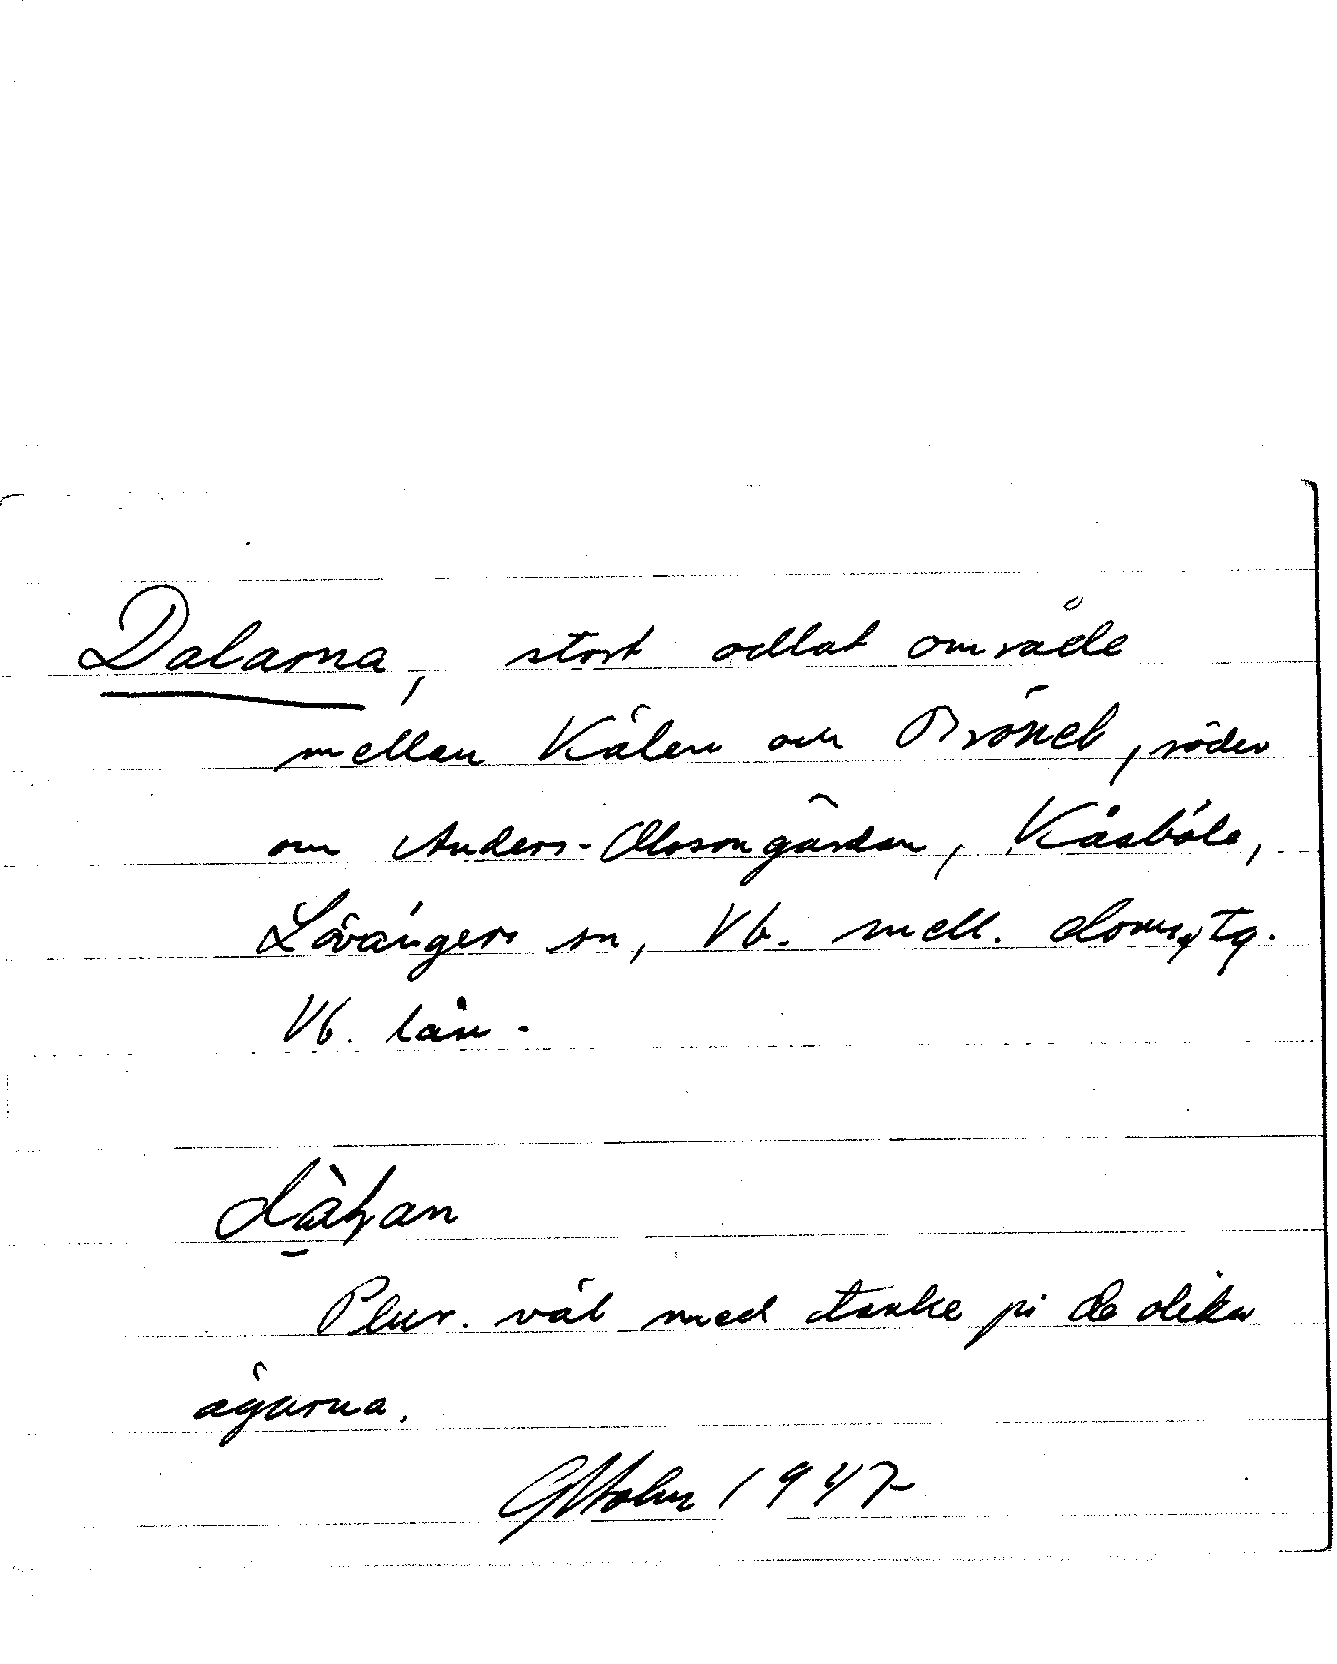 Dalarna, stort odlat område
mellan Kålen och Brönet, söder
om Anders-Olosongården, Kåsböle,
Lövångers sn, Vb. mell. doms, tg.
Vb. län.
Plur. väl med tanke på de olika
ägarna.
1947